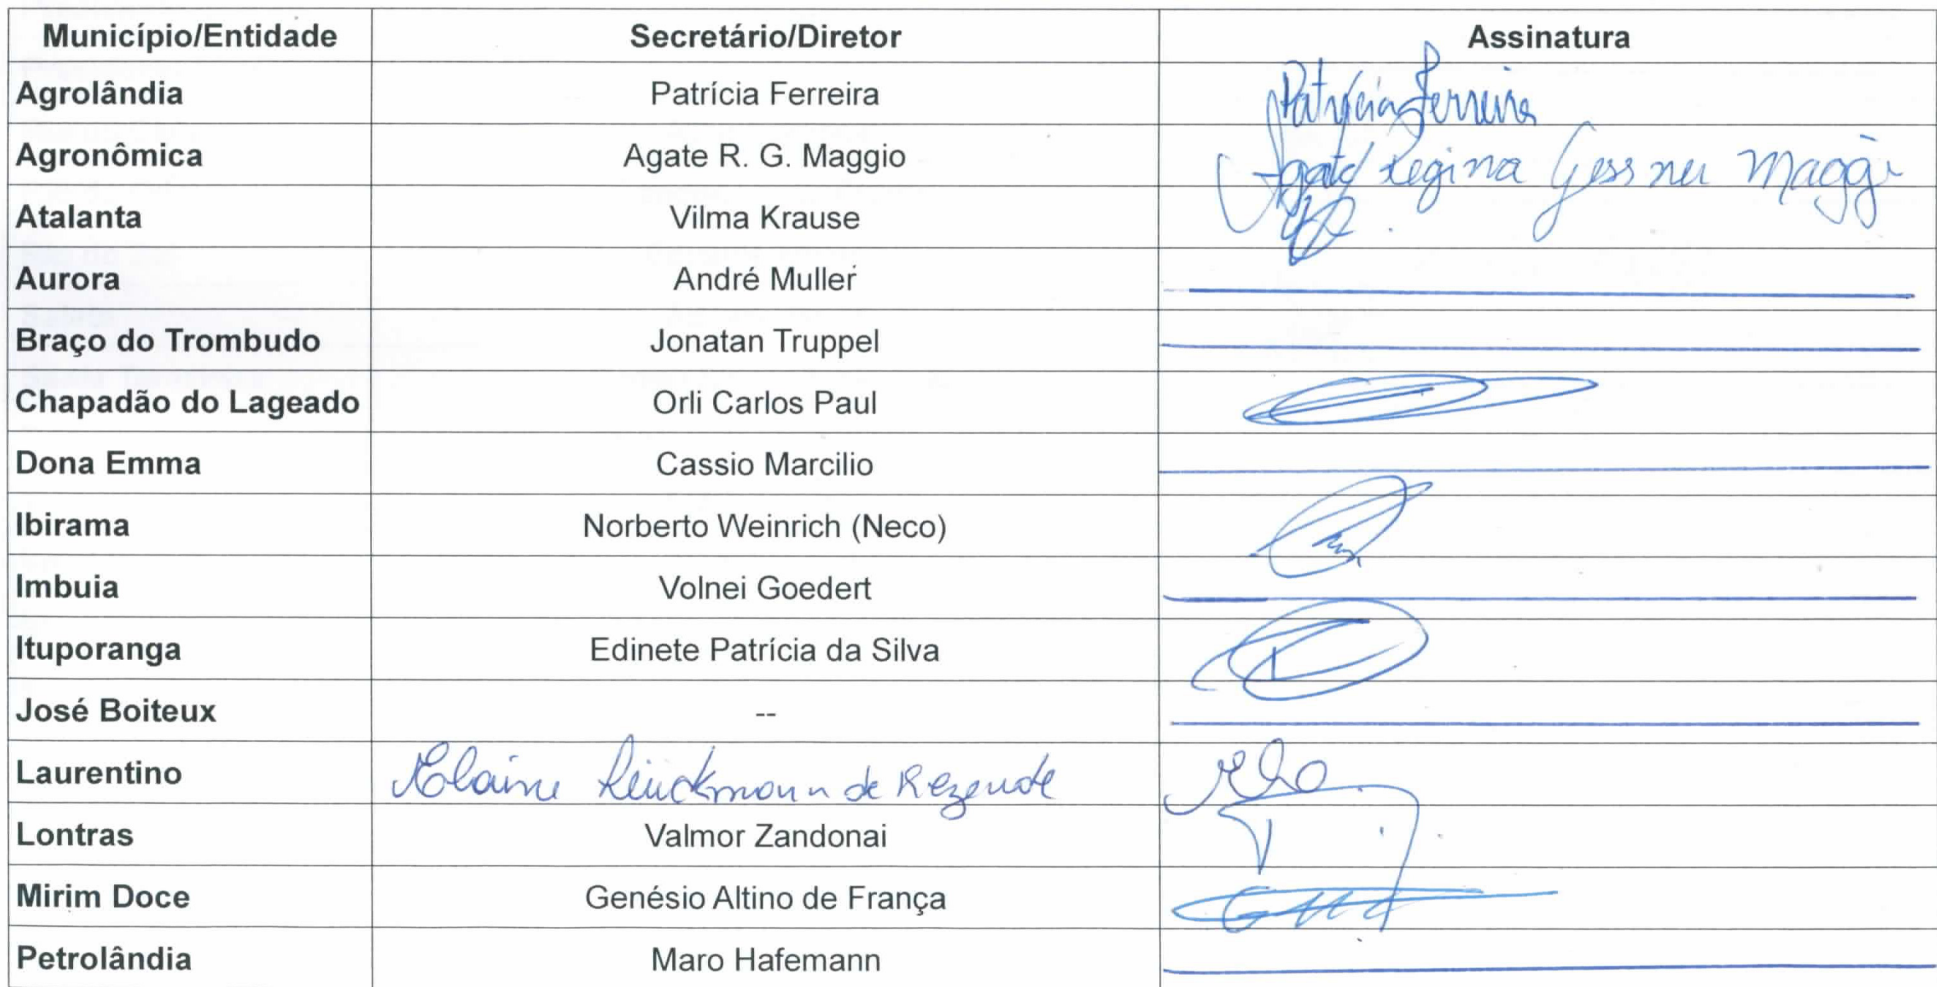 Município/Entidade Secretário/Diretor Assinatura
Agrolândia Patrícia Ferreira Patrícia Ferreira
Agronômica Agate R. G. Maggio Agate Regina Gessner Maggi
Atalanta Vilma Krause
Aurora André Muller
Braço do Trombudo Jonatan Truppel
Chapadão do Lageado Orli Carlos Paul
Dona Emma Cassio Marcilio
Ibirama Norberto Weinrich (Neco)
Imbuia Volnei Goedert
Ituporanga Edinete Patrícia da Silva
José Boiteux --
Laurentino de Rezende
Lontras Valmor Zandonai
Mirim Doce Genésio Altino de França
Petrolândia Maro Hafemann